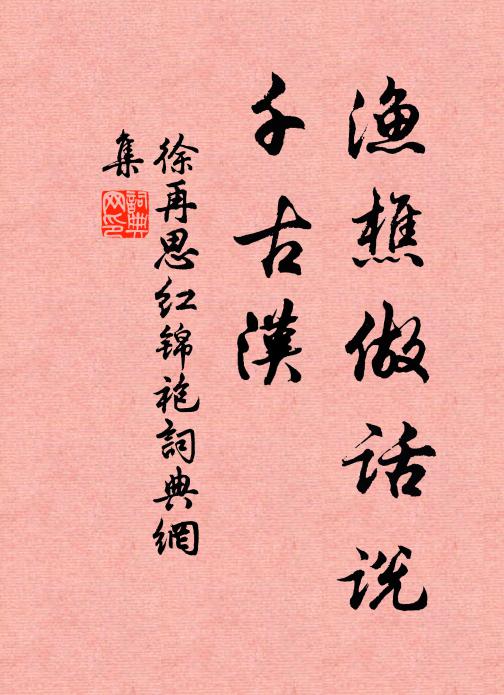 渔樵做话说
千古漢
徐再思红锦袍詞典網
集
詞典网印